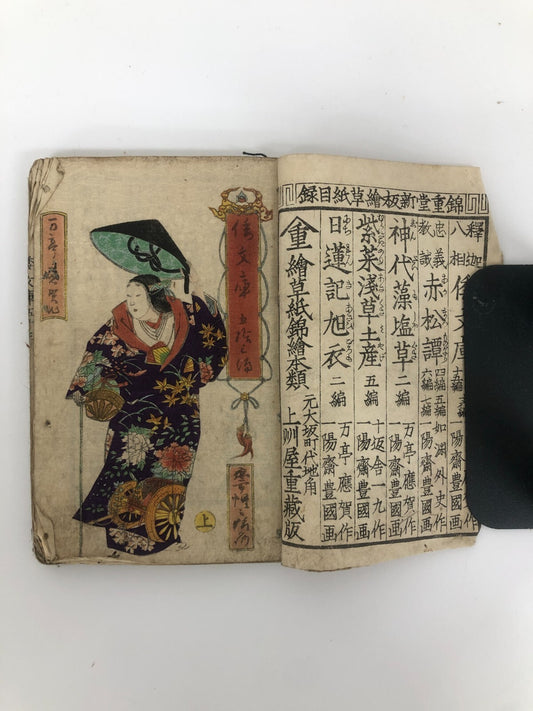 錦重堂新板繪草紙目録
釋迦八相 倭文庫
忠義教誡 赤松譚 四編 五編 六編 七編 如淵外史作 一陽齋豊國画
神代藻塩草 二編 万亭應賀作 一陽齋豊國画
紫菜浅草土産 五編 十返舎一九作 一陽齋豊國画
日蓮記旭衣 二編 万亭應賀作 一陽齋豊國画
重 繪草紙錦繪本類 元大坂町代地角 上州屋重藏版
倭文庫
万亭應賀
上